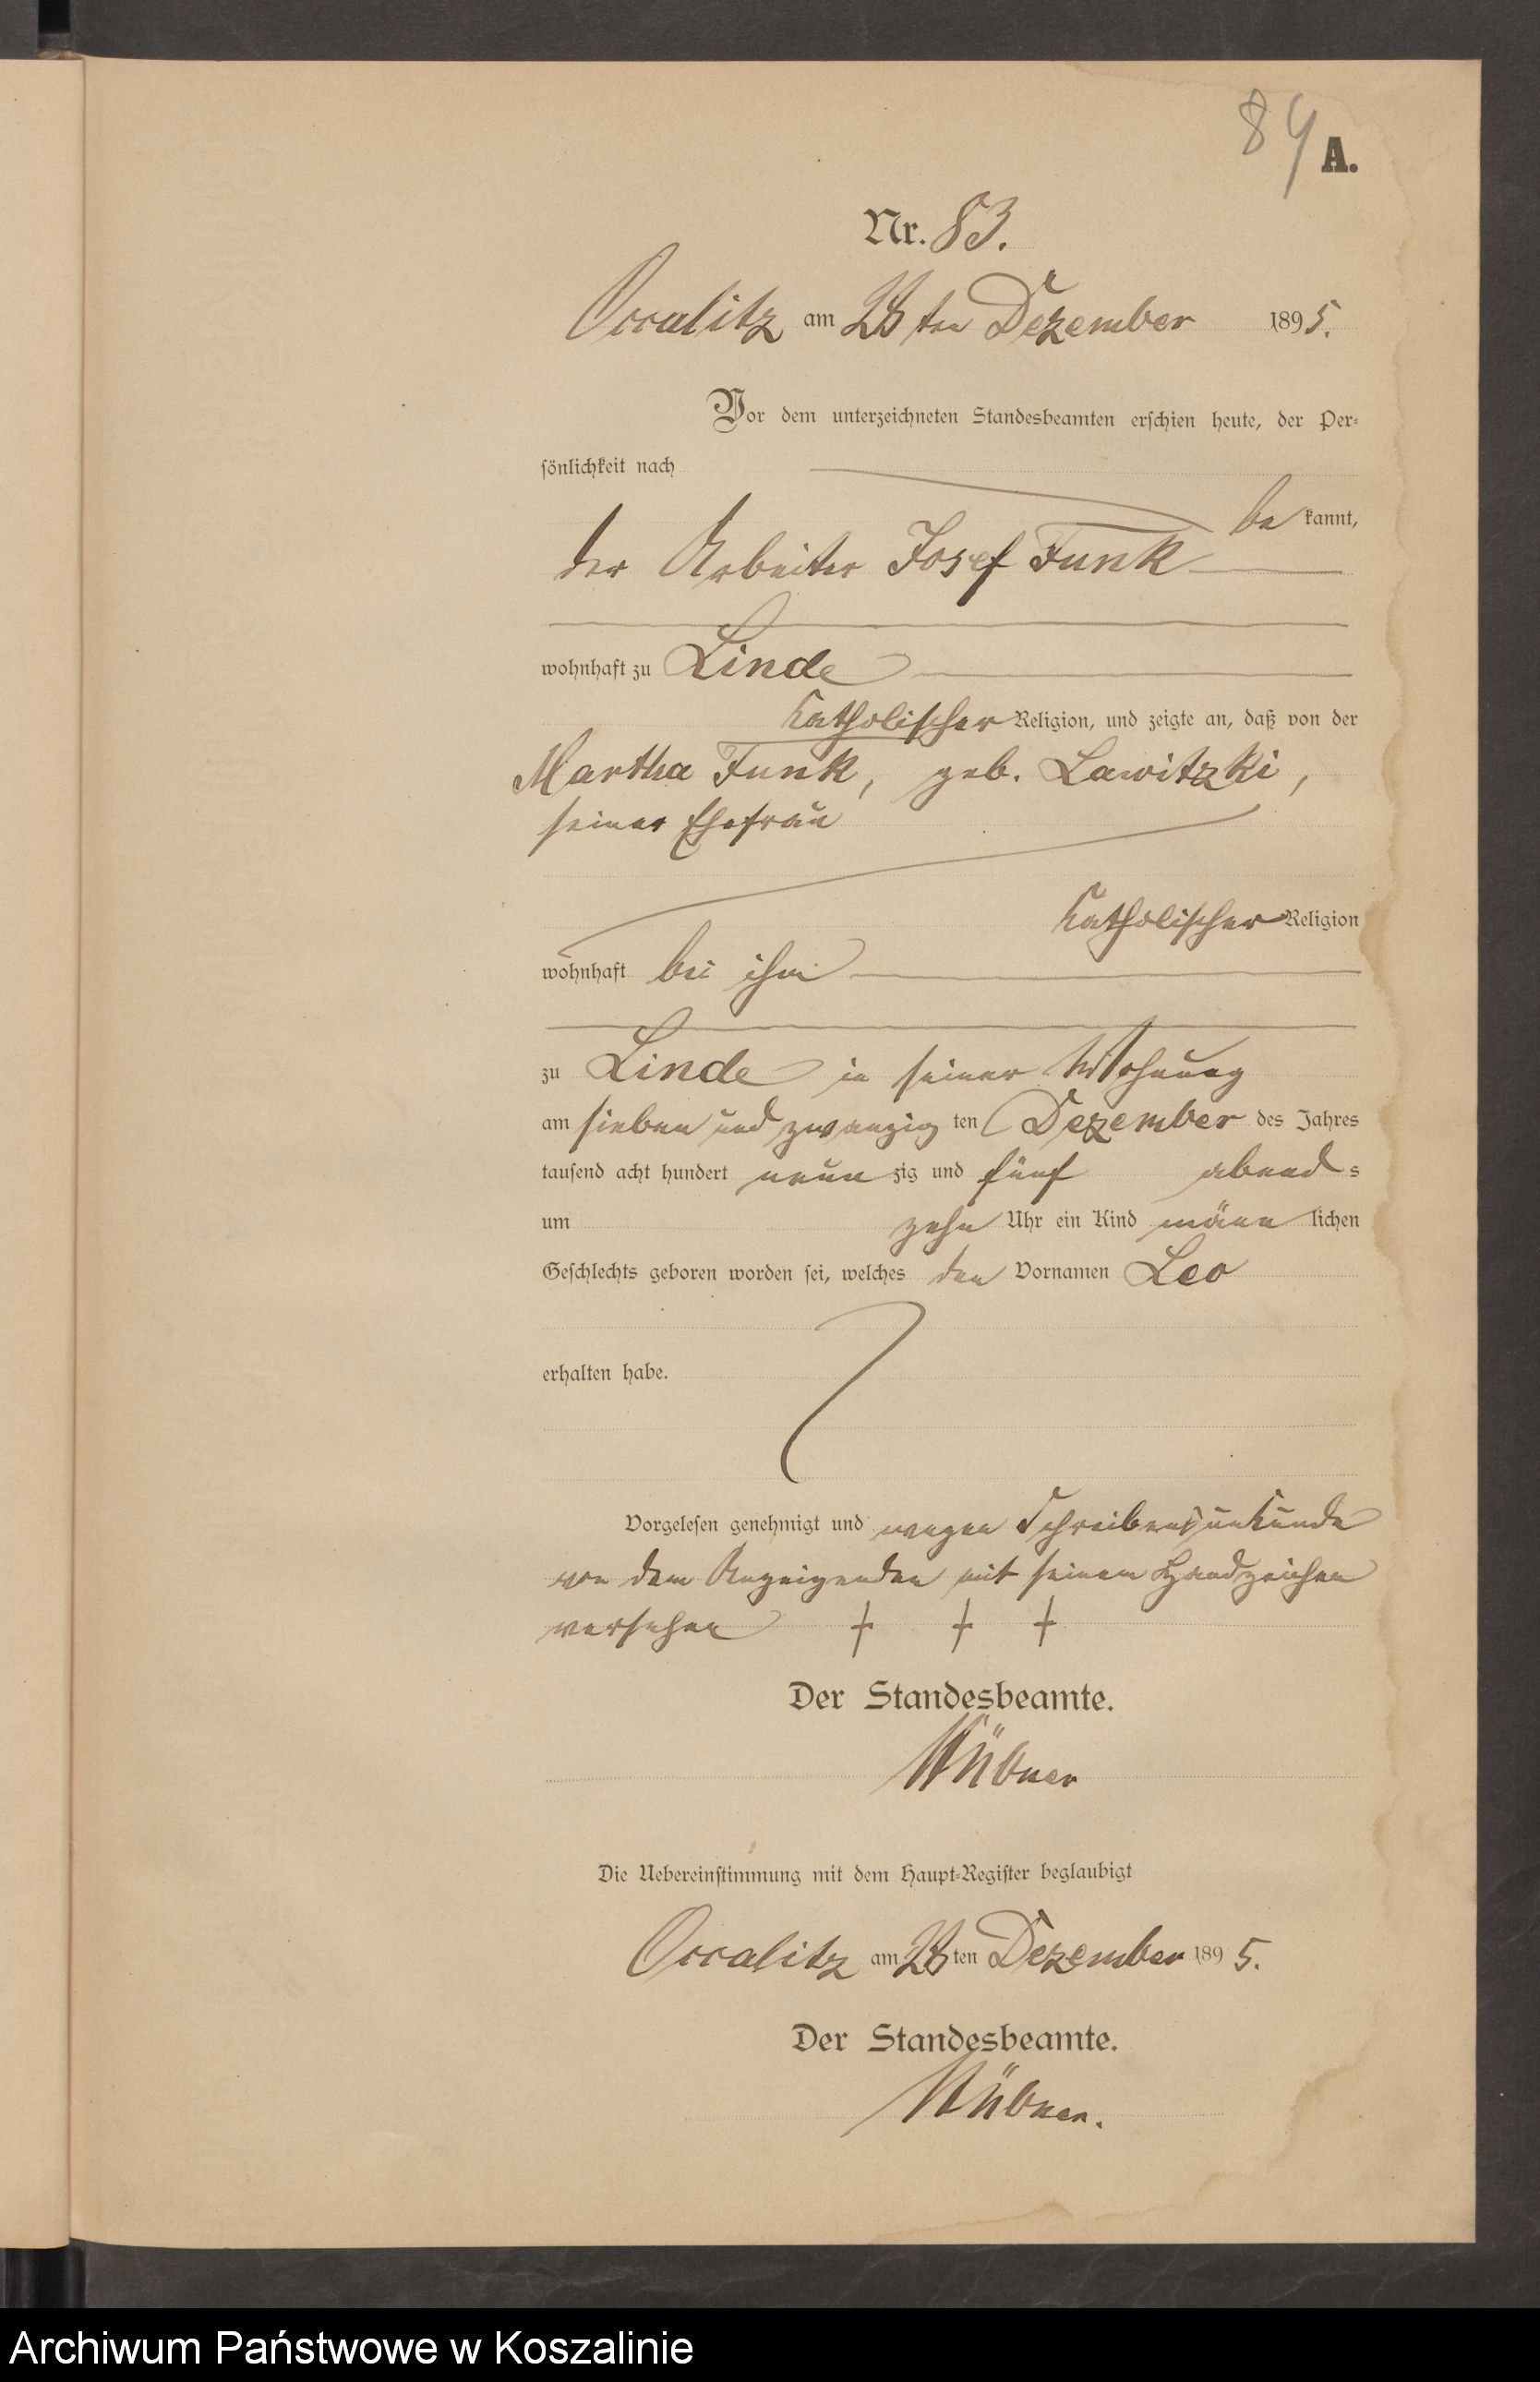 84
A.
Nr. 83.
Occalitz am 28ten Dezember 1895.
Vor dem unterzeichneten Standesbeamten erschien heute, der Per-
sönlichkeit nach
bekannt,
der Arbeiter Josef Funk
wohnhaft zu Linde
katholischer Religion, und zeigte an, daß von der
Martha Funk, geb. Lawitzki,
seiner Ehefrau
katholischer Religion
wohnhaft bei ihm
zu Linde in seiner Wohnung
am sieben und zwanzig ten Dezember des Jahres
tausend acht hundert neunzig und fünf abends
um zehn Uhr ein Kind männlichen
Geschlechts geboren worden sei, welches den Vornamen Leo
erhalten habe.
Vorgelesen genehmigt und wegen Schreibensunkunde
von dem Anzeigenden mit seinem Handzeichen
versehen + + +
Der Standesbeamte.
Die Uebereinstimmung mit dem Haupt-Register beglaubigt
Occalitz am 28ten Dezember 1895.
Der Standesbeamte.
Archiwum Państwowe w Koszalinie